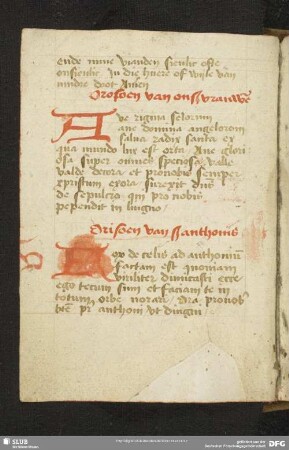 ende mine vianden sienlic ofte
onsienlic In die huere of wyle van
minre doot Amen
Orosoen van onser vrauwen
Ave regina celorum
ave domina angelorom
salua radix santa ex
qua mundo lux est orta Aue glori
osa super omnes speciosa valle
valde decora et pro nobis semper
xpristum exora surexit dns
de sepulcro qui pro nobis
pependit in lingno
Orisoen van s anthonis
Vox de celis ad anthonium
factam est quoniam
viriliter dimicasti ecce
ego tecum sum et faciam te in
totum orbe norari Ora pro nob
bte pr anthoni vt dingni
SLUB
DFG